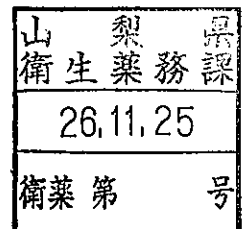 山梨県
衛生薬務課
26.11.25
衛薬第 号